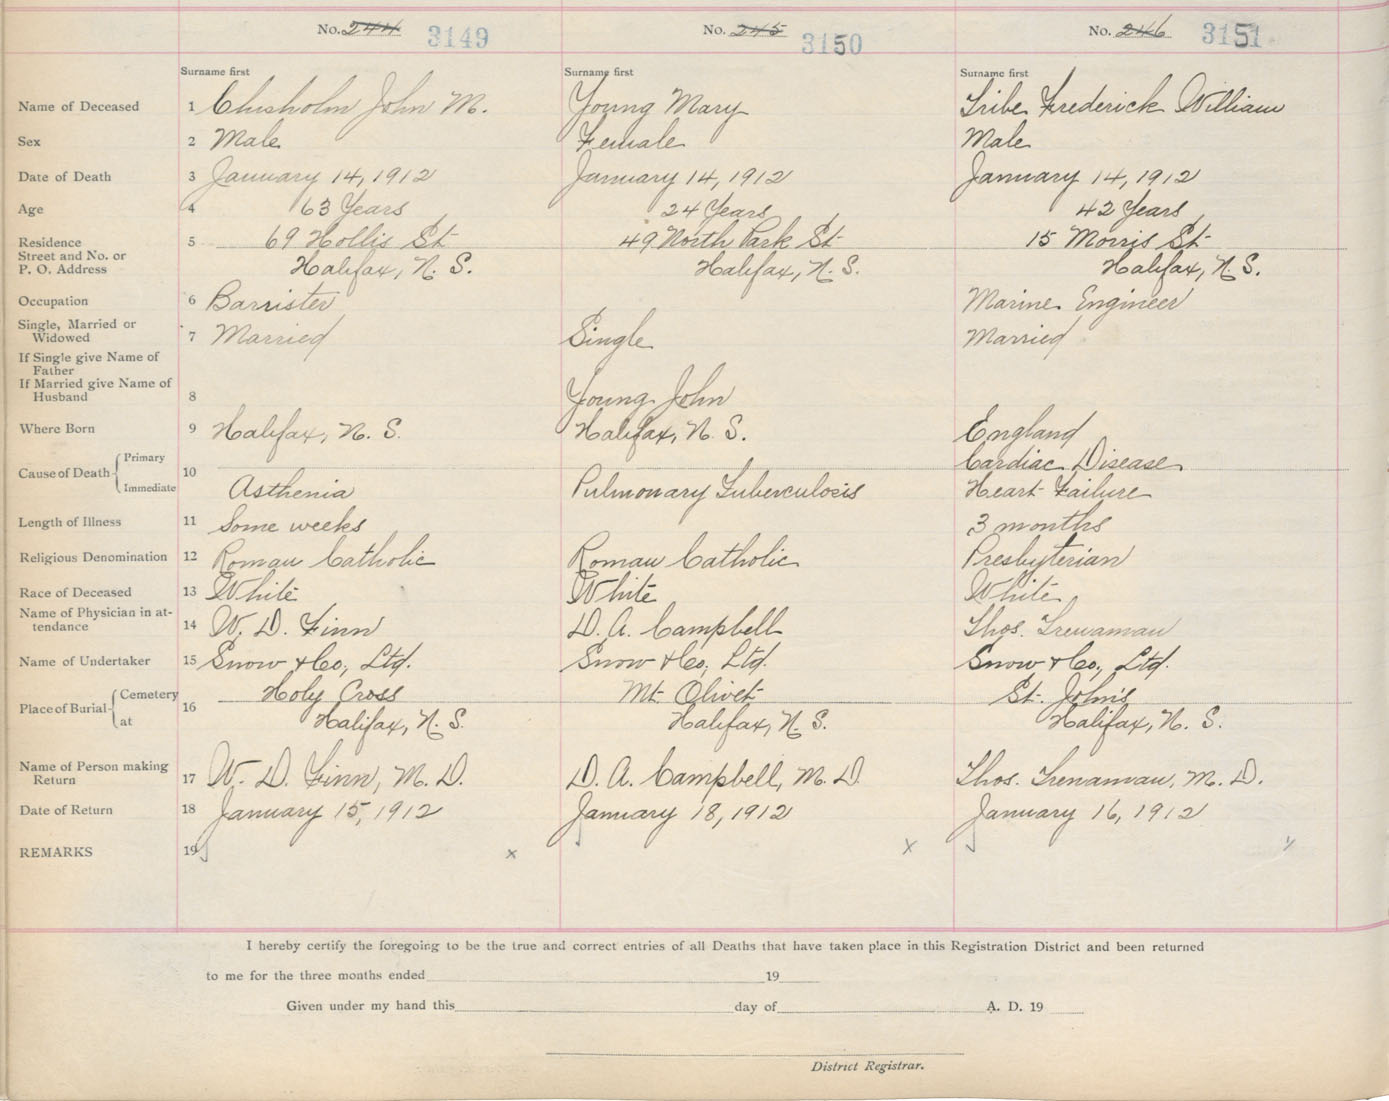 No. 244 3149 No. 245 3150 No. 246 3151
Surname first Surname first Surname first
Name of Deceased 1 Chisholm John M. Young Mary Tribe Frederick William
Sex 2 Male Female Male
Date of Death 3 January 14, 1912 January 14, 1912 January 14, 1912
Age 4 63 Years 24 Years 42 Years
Residence 5 69 Hollis St. 49 North Park St. 15 Morris St.
Street and No. or
P. O. Address Halifax, N. S. Halifax, N. S. Halifax, N. S.
Occupation 6 Barrister Marine Engineer
Single, Married or
Widowed 7 Married Single Married
If Single give Name of
Father
If Married give Name of
Husband 8 Young John
Where Born 9 Halifax, N. S. Halifax, N. S. England
Cause of Death Primary 10 Cardiac Disease
Immediate Asthenia Pulmonary Tuberculosis Heart Failure
Length of Illness 11 Some weeks 3 months
Religious Denomination 12 Roman Catholic Roman Catholic Presbyterian
Race of Deceased 13 White White White
Name of Physician in at-
tendance 14 W. D. Finn D. A. Campbell Thos. Trenaman
Name of Undertaker 15 Snow & Co., Ltd. Snow & Co., Ltd. Snow & Co., Ltd.
Place of Burial Cemetery 16 Holy Cross Mt. Olivet St. John's
at Halifax, N. S. Halifax, N. S. Halifax, N. S.
Name of Person making
Return 17 W. D. Finn, M. D. D. A. Campbell, M. D. Thos. Trenaman, M. D.
Date of Return 18 January 15, 1912 January 18, 1912 January 16, 1912
REMARKS 19 x x
I hereby certify the foregoing to be the true and correct entries of all Deaths that have taken place in this Registration District and been returned
to me for the three months ended 19
Given under my hand this day of A. D. 19
District Registrar.